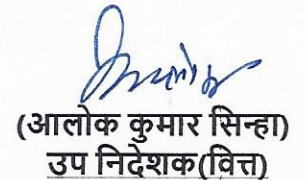 (आलोक कुमार सिन्हा)
उप निदेशक(वित्त)